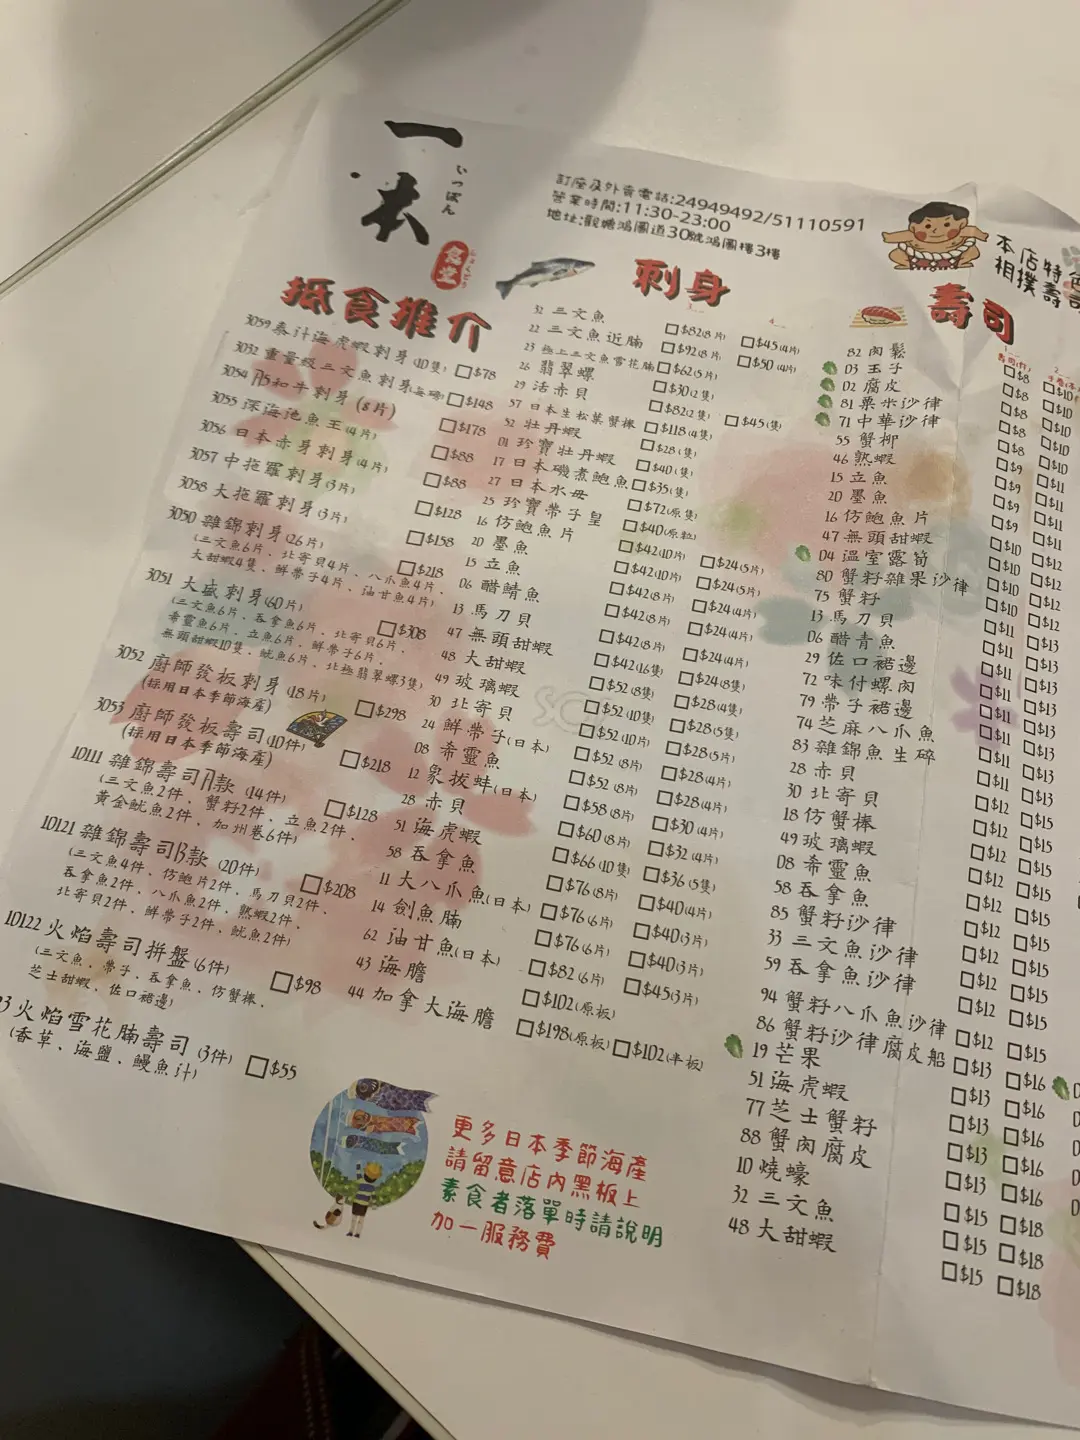 一本
いっぽん
食堂
しょくどう
訂座及外賣電話:24949492/51110591
營業時間:11:30-23:00
地址:觀塘鴻圖道30號鴻圖樓3樓
本店特色
相撲壽司
抵食推介
3059 泰汁海虎蝦刺身(10隻) $78
3032 重量級三文魚刺身 $148
3054 A5和牛刺身 (8片) $178
3055 深海池魚王(4片) $88
3056 日本赤身刺身(4片) $88
3057 中拖羅刺身(3片) $128
3058 大拖羅刺身(3片) $158
3050 雜錦刺身(26片) $218
(三文魚6片、北寄貝4片、八爪魚4片、
大甜蝦4隻、鮮帶子4片、油甘魚4片)
3051 大盛刺身(60片) $308
(三文魚6片、吞拿魚6片、北寄貝6片、
希靈魚6片、立魚6片、鮮帶子6片、
無頭甜蝦10隻、魷魚6片、北極翡翠螺3隻)
3052 廚師發板刺身(18片) $298
(採用日本季節海產)
3053 廚師發板壽司(10件) $218
(採用日本季節海產)
10111 雜錦壽司A款 (14件) $128
(三文魚2件、蟹籽2件、立魚2件、
黃金魷魚2件、加州卷6件)
10121 雜錦壽司B款 (20件) $208
(三文魚4件、仿鮑片2件、馬刀貝2件、
吞拿魚2件、八爪魚2件、熟蝦2件、
北寄貝2件、鮮帶子2件、魷魚2件)
10122 火焰壽司拼盤(6件) $98
(三文魚、帶子、吞拿魚、仿蟹棒、
芝士甜蝦、佐口裙邊)
火焰雪花腩壽司 (3件) $55
(香草、海鹽、鰻魚汁)
刺身
32 三文魚 $82(8片) $45(4片)
22 三文魚近腩 $92(8片) $50(4片)
23 極上三文魚雪花腩 $62(5片)
26 翡翠螺 $30(2隻)
29 活赤貝 $82(2隻) $45(隻)
57 日本生松葉蟹棒 $118(4隻)
52 牡丹蝦 $28(隻)
01 珍寶牡丹蝦 $40(隻)
17 日本磯煮鮑魚 $35(隻)
27 日本水母 $72(原隻)
25 珍寶帶子皇 $40(原粒)
16 仿鮑魚片 $42(10片) $24(5片)
20 墨魚 $42(10片) $24(5片)
15 立魚 $42(8片) $24(4片)
06 醋鯖魚 $42(8片) $24(4片)
13 馬刀貝 $42(8片) $24(4片)
47 無頭甜蝦 $42(16隻) $24(8隻)
48 大甜蝦 $52(8隻) $28(4隻)
49 玻璃蝦 $52(10隻) $28(5隻)
30 北寄貝 $52(10片) $28(5片)
24 鮮帶子(日本) $52(8片) $28(4片)
08 希靈魚 $52(8片) $28(4片)
12 象拔蚌(日本) $58(8片) $30(4片)
28 赤貝 $60(8片) $32(4片)
51 海虎蝦 $66(10隻) $36(5隻)
58 吞拿魚 $76(8片) $40(4片)
11 大八爪魚(日本) $76(6片) $40(3片)
14 劍魚腩 $76(6片) $40(3片)
62 油甘魚(日本) $82(6片) $45(3片)
43 海膽 $102(原板)
44 加拿大海膽 $198(原板) $102(半板)
壽司
82 肉鬆 $8 $10
03 玉子 $8 $10
02 腐皮 $8 $10
81 粟米沙律 $8 $10
71 中華沙律 $9 $11
55 蟹柳 $9 $11
46 熟蝦 $9 $11
15 立魚 $10 $12
20 墨魚 $10 $12
16 仿鮑魚片 $10 $12
47 無頭甜蝦 $11 $13
04 溫室露筍 $11 $13
80 蟹籽雜果沙律 $11 $13
75 蟹籽 $11 $13
13 馬刀貝 $11 $13
06 醋青魚 $11 $13
29 佐口裙邊 $12 $15
72 味付螺肉 $12 $15
79 帶子裙邊 $12 $15
74 芝麻八爪魚 $12 $15
83 雜錦魚生碎 $12 $15
28 赤貝 $12 $15
30 北寄貝 $12 $15
18 仿蟹棒 $12 $15
49 玻璃蝦 $12 $15
08 希靈魚
58 吞拿魚
85 蟹籽沙律
33 三文魚沙律
59 吞拿魚沙律
94 蟹籽八爪魚沙律 $12 $15
86 蟹籽沙律腐皮船 $13 $16
19 芒果 $13 $16
51 海虎蝦 $13 $16
77 芝士蟹籽 $13 $16
88 蟹肉腐皮 $13 $16
10 燒蠔 $15 $18
32 三文魚 $15 $18
48 大甜蝦 $15 $18
更多日本季節海產
請留意店內黑板上
素食者落單時請說明
加一服務費